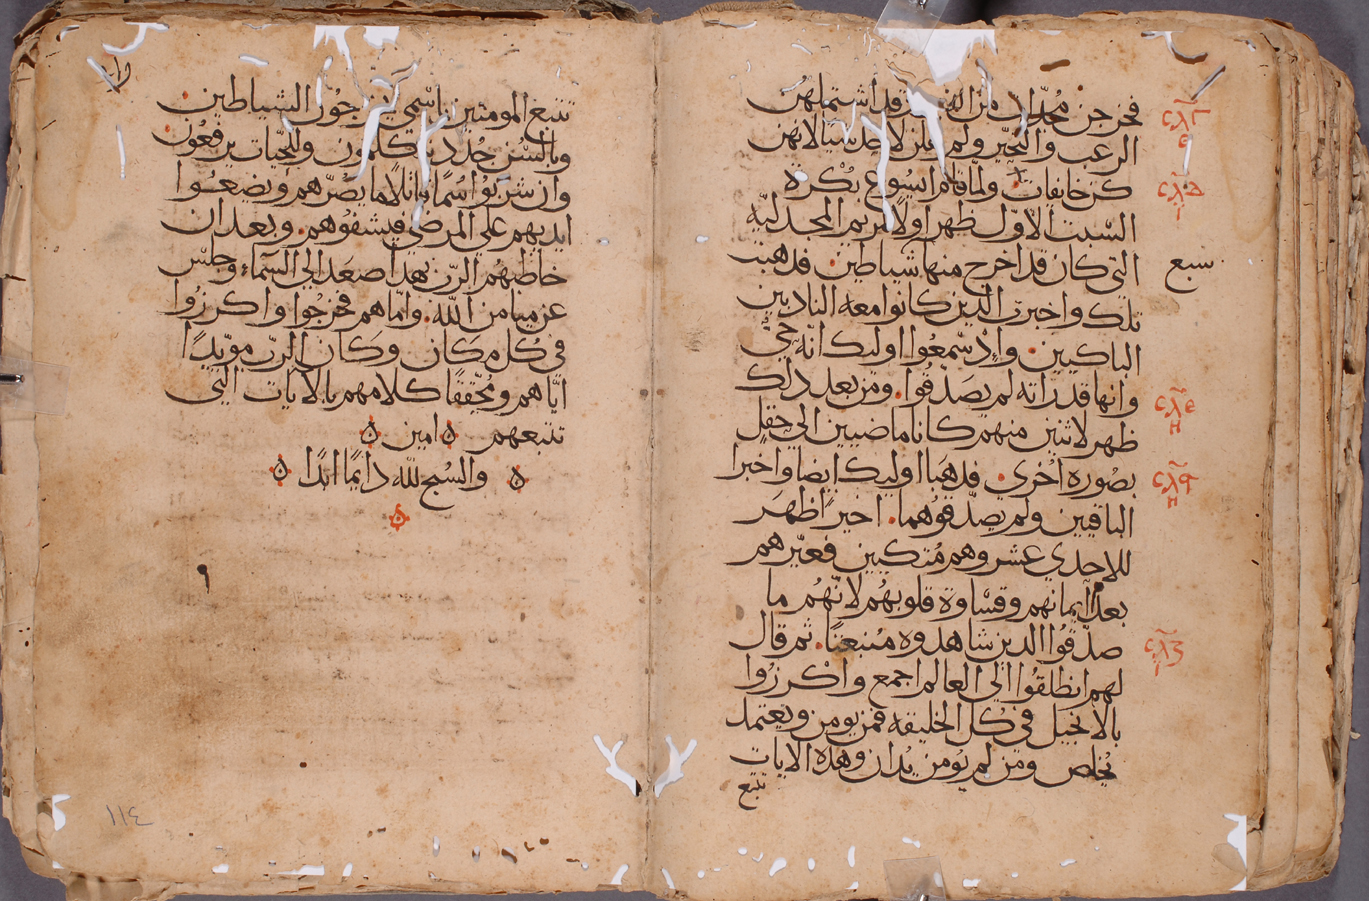 فخرجن مجدات من القبر قد اشتملهن
الرعب والتحير ولم يقلن لاحد شيا لانهن
كن خايفات. ولما قام اسبوع بكرة
السبت الاول ظهر اولا لمريم المجدلية
التي كان قد اخرج منها شياطين. فذهبت
سبع
تلك واخبرت الذين كانوا معه النادبين
الباكيين. واذ سمعوا اوليك انه حي
وانها قد راته لم يصدقوا. ومن بعد ذلك
ظهر لاثنين منهم كانا ماضيين الي حقل
بصوره اخري. فذهبا اوليك ايضا واخبرا
الباقيين ولم يصدقوهما. اخيرا ظهر
للاحدي عشر وهم متكيين فعيرهم
بعد ايمانهم وقساوة قلوبهم لانهم ما
صدقوا الذين شاهدوه منبعثا. ثم قال
لهم انطلقوا الي العالم اجمع واكرزوا
بالانجيل في كل الخليقه فمن يومن ويعتمد
يخلص ومن لم يومن يدان وهذه الايات
تتبع
تتبع المومنين باسمي يخرجون الشياطين
وبالسن جدد يتكلمون والحيات يرفعون
وان شربوا سما قاتلا ما يضرهم ويضعوا
ايديهم علي المرضي فيشفوهم. وبعد ان
خاطبهم الرب بهذا صعد الي السماء وجلس
عن ميامن الله. واما هم فخرجوا واكرزوا
في كل مكان وكان الرب مويدا
اياهم ومحققا كلامهم بالايات التي
تتبعهم ه امين ه
ه والسبح لله دايما ابدا ه
١١٤